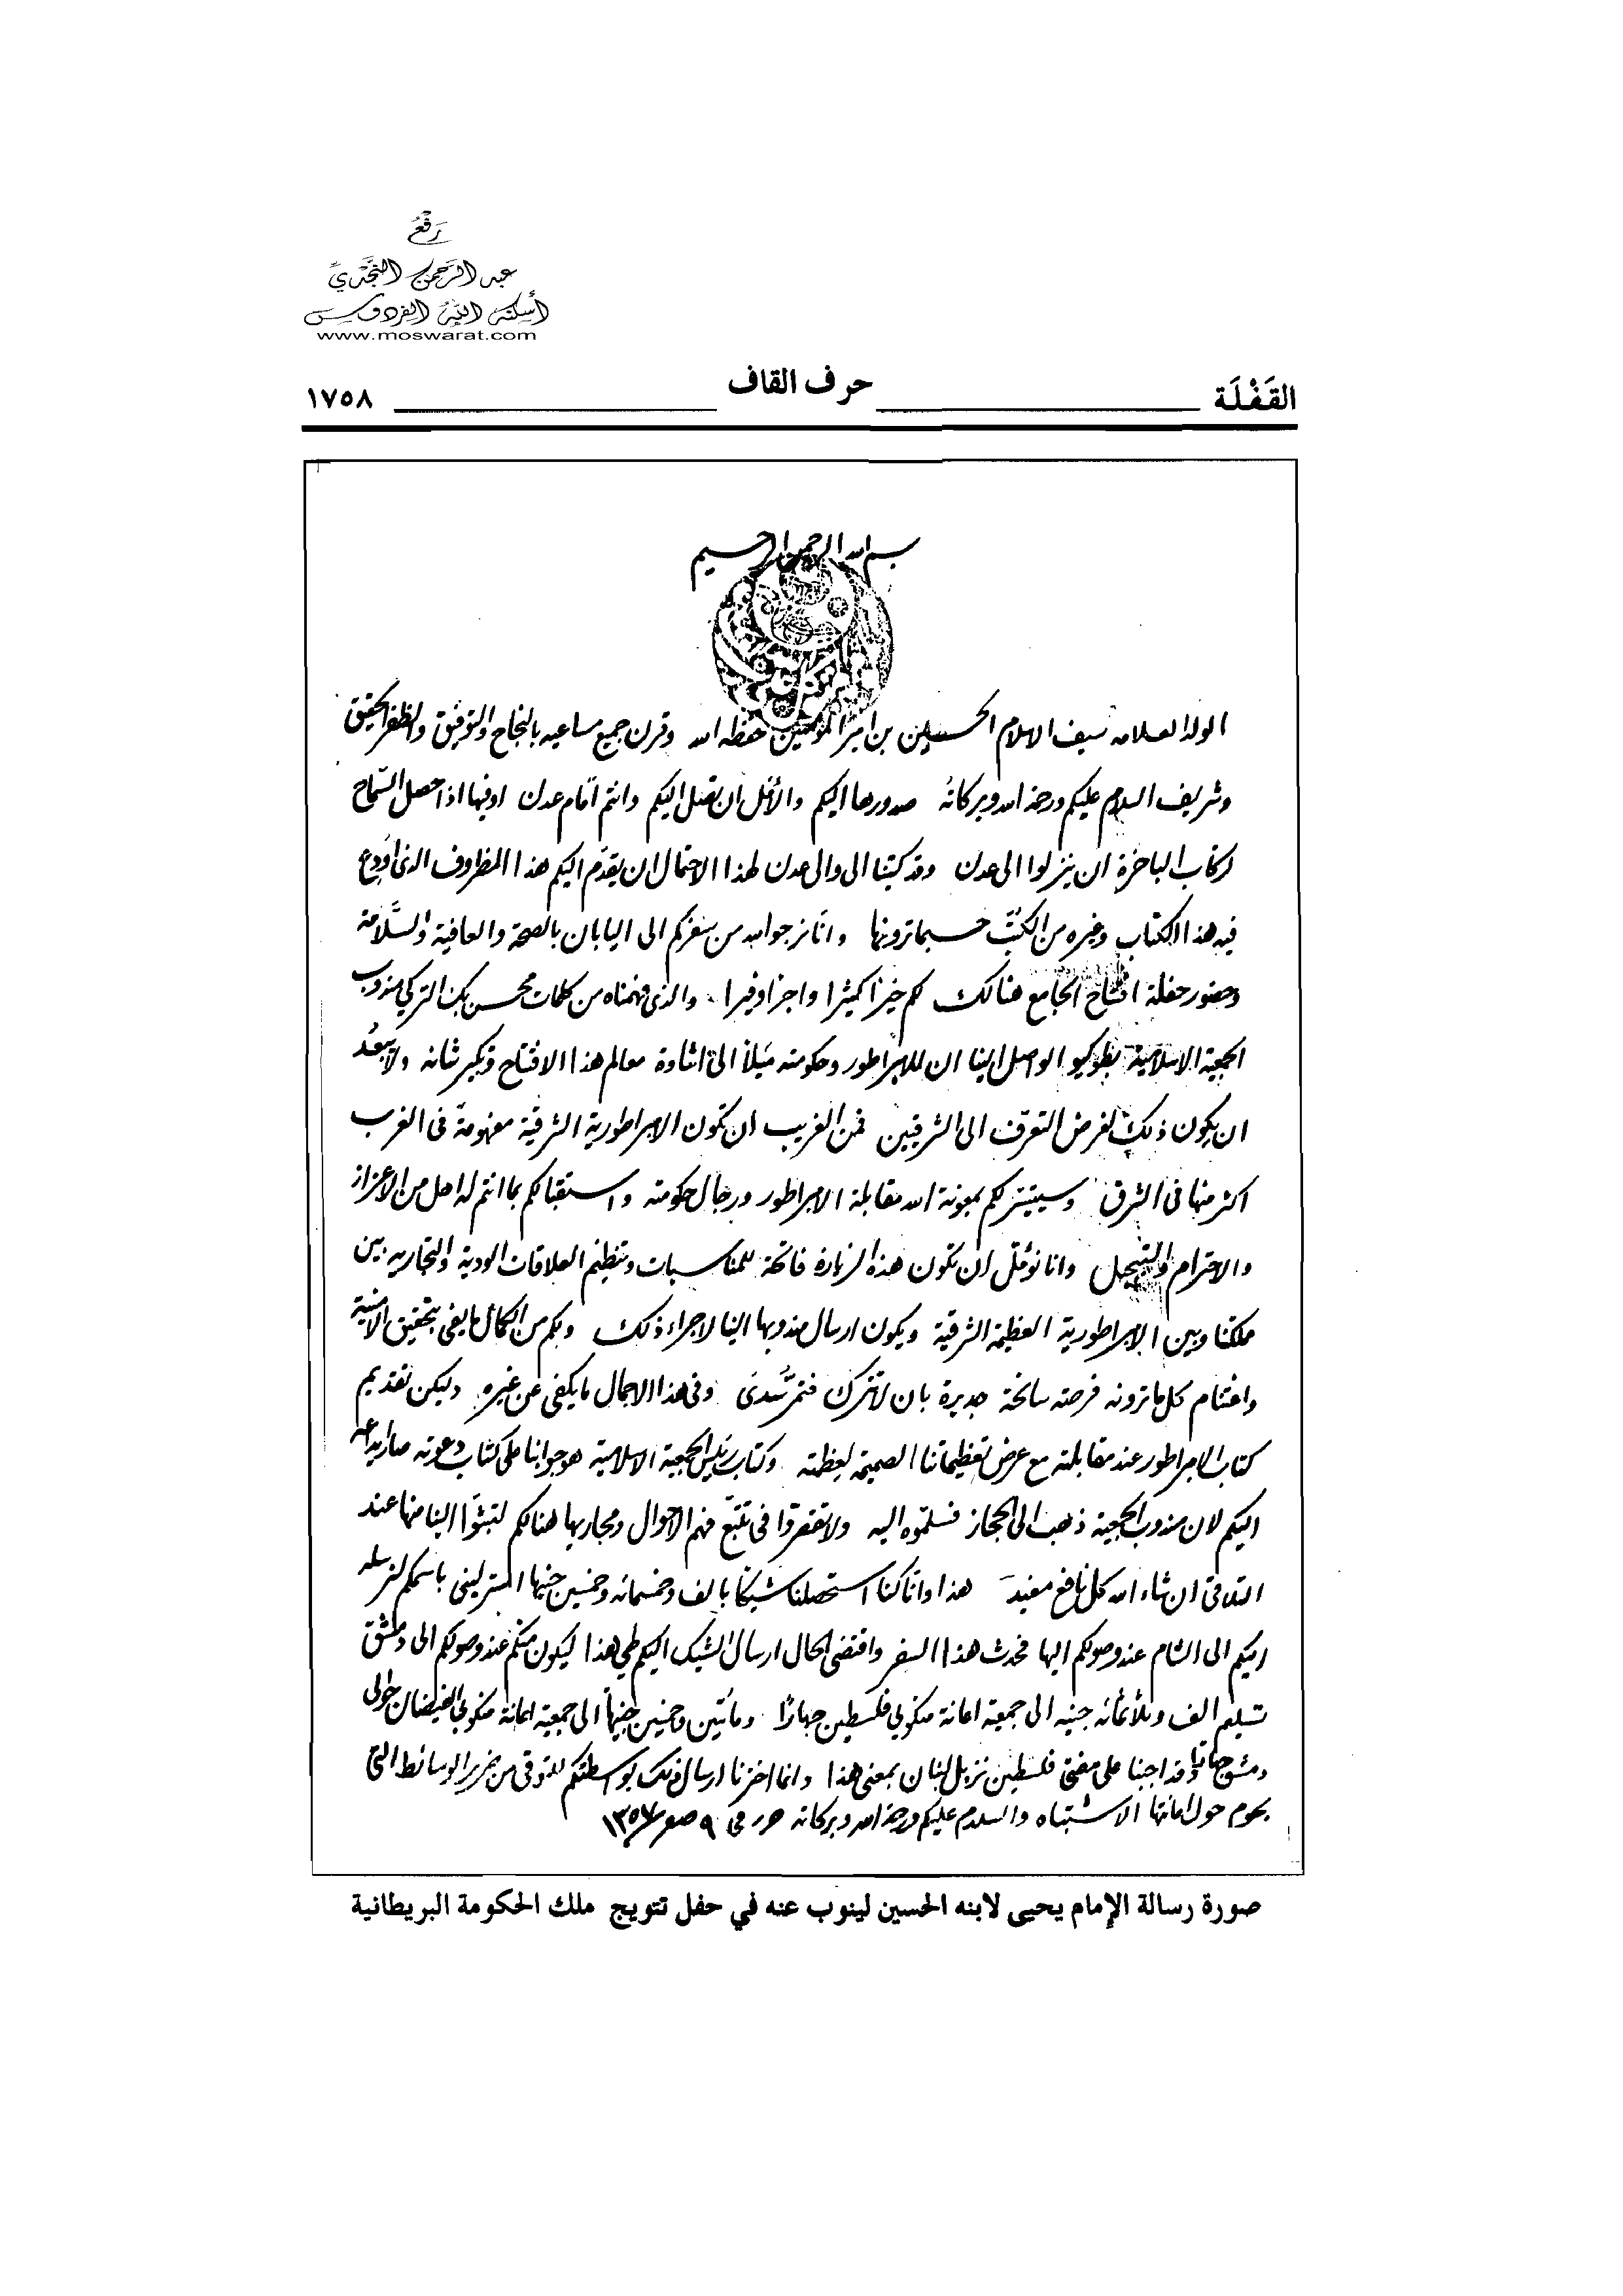 رَفْعُ
عبد الرَّحمن النَّجْدِيِّ
أسكنه اللهُ الفردوس
www.moswarat.com
القَفْلَة حرف القاف ١٧٥٨
بسم الله الرحمن الرحيم
الولد العلامه سيف الاسلام الحسين بن امير المؤمنين حفظه الله وقرن جميع مساعيه بالنجاح والتوفيق والظفر الحقيق
وشريف السلام عليكم ورحمة الله وبركاته صدورها اليكم والأمل ان تصل اليكم وانتم أمام عدن اوفيها اذا حصل السّماح
لركاب الباخرة ان ينزلوا الى عدن وقد كتبنا الى والى عدن لهذا الاحتمال ان يقدّم اليكم هذا المظروف الذى اودع
فيه هذا الكتاب وغيره من الكتب حسبما ترونها وانّا نرجو الله من سفركم الى اليابان بالصحة والعافية والسَّلامة
وحضور حفلة افتتاح الجامع هنالك لكم خيرا كثيرا واجرا وفيرا والذى فهمناه من كلمات محسن بك التركي مندوب
الجمعية الاسلامية بطوكيو الواصل الينا ان للامبراطور وحكومته مَيلاً الى اشادة معالم هذا الافتتاح وتكبير شانه ولا يبعُد
ان يكون ذلك لغرض التعرّف الى الشرقيين فمن الغريب ان تكون الامبراطورية الشرقية مفهومة فى الغرب
اكثر منها فى الشرق وسيتيسّر لكم بمعونة الله مقابلة الامبراطور ورجال حكومته واستقبالكم بما انتم له اهل من الاعزاز
والاحترام والتبجيل وانا نؤمّل ان تكون هذه الزيارة فاتحة للمناسبات وتنظيم العلاقات الودية والتجاريه بين
ملكنا وبين الامبراطورية العظيمة الشرقية ويكون ارسال مندوبها الينا لاجراء ذلك وبكم من الكمال ما يفى بتحقيق الامنية
واغتنام كل ما ترونه فرصته سانحة جديرة بان لا تترك فتمرّ سُدىً وفى هذا الاجمال ما يكفى عن غيره وليكن تقديم
كتاب الامبراطور عند مقابلته مع عرض تعظيماتنا الصميمة لعظمته وكتاب رئيس الجمعية الاسلامية هو جوابنا على كتاب دعوته صار ايداعه
اليكم لان مندوب الجمعية ذهب الى الحجاز فسلموه اليه ولا تقصروا فى تتبّع فهم الاحوال ومجاريها هنالكم لتبثوا الينا منها عند
التلاقى ان شاء الله كل نافع مفيد هذا وانا كنا استحصلنا شيكا بالف وخمسمائه وخمسين جنيها استرلينى باسمكم لنرسله
اليكم الى الشام عند وصولكم اليها فحدث هذا السفر واقتضى الحال ارسال الشيك اليكم طي هذا ليكون منكم عند وصولكم الى دمشق
تسليم الف وثلاثمائه جنيه الى جمعية اعانة منكوبي فلسطين جهارًا ومائتين وخمسين جنيهاً الى جمعية اعانة منكوبي الفيضان حوالى
دمشق وقد اجبنا على مفتى فلسطين نزيل لبنان بمعنى هذا وانما اخترنا ارسال ذلك بواسطتكم للتوقى من الوسائط التى
يحوم حول امانتها الاشتباه والسلام عليكم ورحمة الله وبركاته حرر فى ٩ صفر ١٣٥٧
صورة رسالة الإمام يحيى لابنه الحسين لينوب عنه في حفل تتويج ملك الحكومة البريطانية